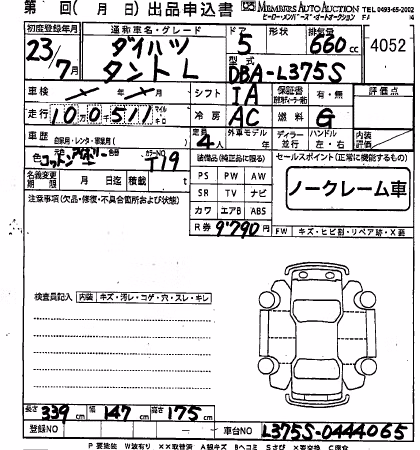 第 回( 月 日)出品申込書 MEMBERS AUTO AUCTION TEL 0493-65-2002
ヒーローメンバーズ・オートオークション
初度登録年月 通称車名・グレード ドア 形状 排気量
23/7月 ダイハツ タントL 5 660cc 4052
DBA-L375S
車検 年 月 シフト IA 保証書 有・無 評価点
走行 100511 マイル キロ 冷房 AC 燃料 G
車歴 自家用・レンタ・事業用( ) 定員 4人 外車モデル 年 ディーラー 並行 ハンドル 左・右 内装評価
色 コットンアイボリー 色替 カラーNO T19 装備品(純正品に限る) セールスポイント(正常に機能するもの)
名義変更期限 月 日迄 積載 t PS PW AW ノークレーム車
注意事項(欠品・修復・不具合箇所および状態) SR TV ナビ
カワ エアB ABS
R券 9790 円 FW キズ・ヒビ割・リペア跡・X要
検査員記入 内装 キズ・汚レ・コゲ・穴・スレ・キレ
長さ 339 cm 幅 147 cm 高さ 175 cm
登録NO 車台NO L375S-0444065
P 要塗装 W波有り XX取替済 A線キズ Bヘコミ Sさび X要交換 C腐食